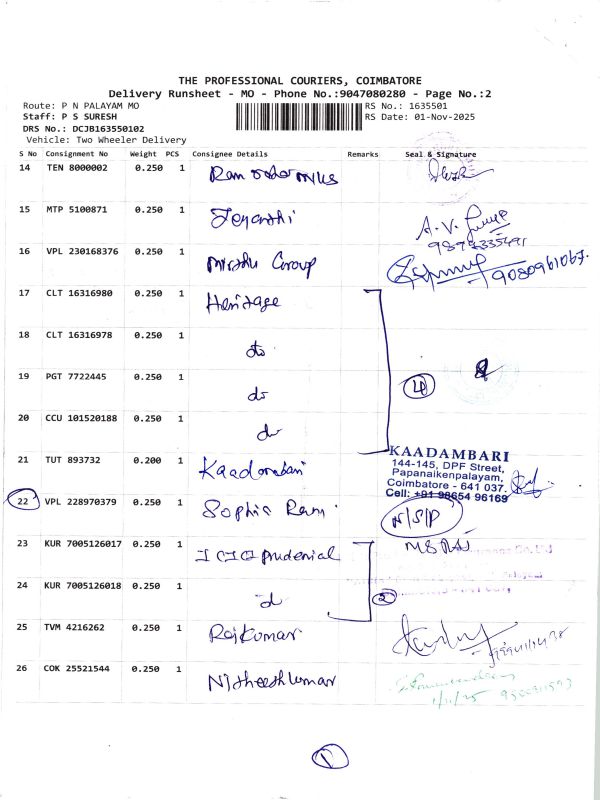 THE PROFESSIONAL COURIERS, COIMBATORE
Delivery Runsheet - MO - Phone No.:9047080280 - Page No.:2
Route: P N PALAYAM MO RS No.: 1635501
Staff: P S SURESH RS Date: 01-Nov-2025
DRS No.: DCJB163550102
Vehicle: Two Wheeler Delivery
S No Consignment No Weight PCS Consignee Details Remarks Seal & Signature
14 TEN 8000002 0.250 1
15 MTP 5100871 0.250 1 Jeyanthi A.V.
16 VPL 230168376 0.250 1 Group 9080961067.
17 CLT 16316980 0.250 1 Heritage
18 CLT 16316978 0.250 1 do
19 PGT 7722445 0.250 1 do
4
20 CCU 101520188 0.250 1 do
21 TUT 893732 0.200 1 Kaadambari
KAADAMBARI
144-145, DPF Street,
Papanaikenpalayam,
Coimbatore - 641 037.
Cell: +91 98654 96169
22 VPL 228970379 0.250 1 Sophia Rani N/S/P
23 KUR 7005126017 0.250 1 ICICI Prudenial
24 KUR 7005126018 0.250 1 d 2
25 TVM 4216262 0.250 1 Rajkumar
26 COK 25521544 0.250 1 Nitheeshkumar
1/11/25
1